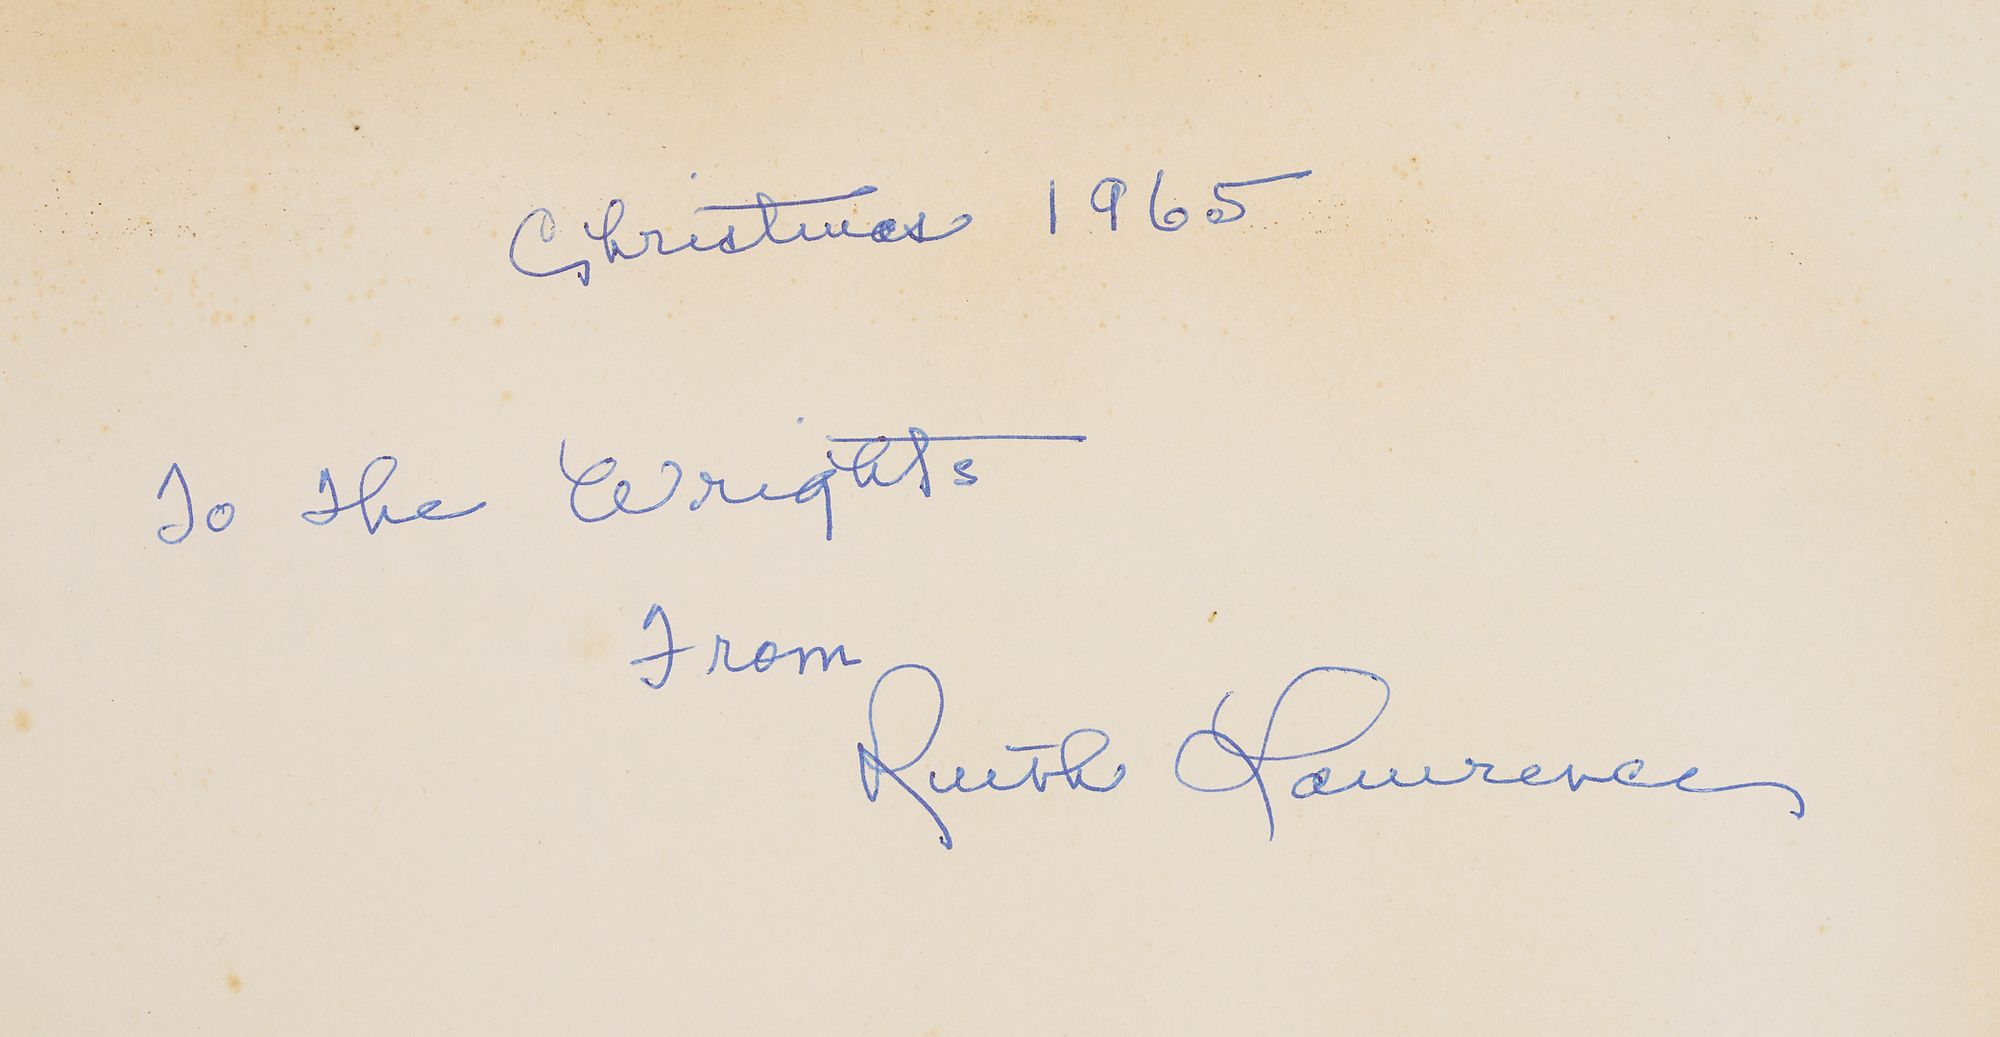 Christmas 1965
To the Wrights
From
Ruth Lawrence